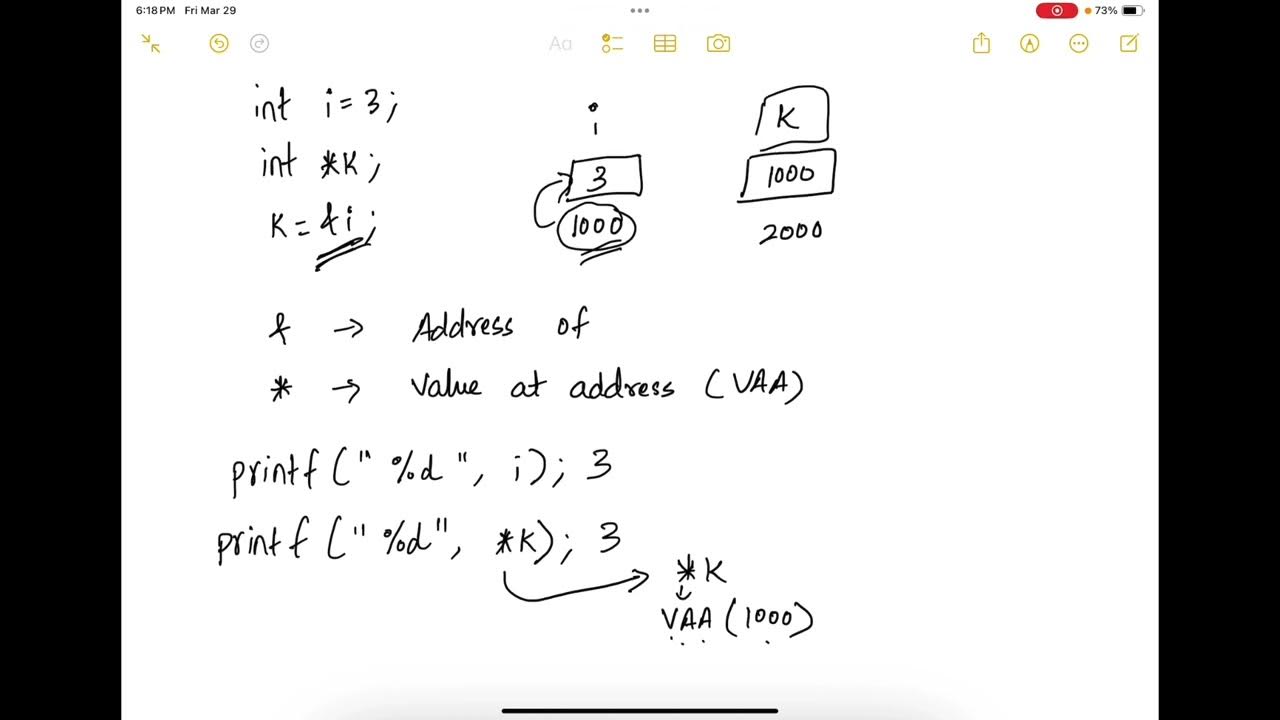 6:18 PM Fri Mar 29
73%
Aa
int i = 3;
int *K;
K = &i;
i
3
1000
K
1000
2000
& → Address of
* → Value at address (VAA)
printf (" %d ", i); 3
printf (" %d", *K); 3
*K
VAA (1000)